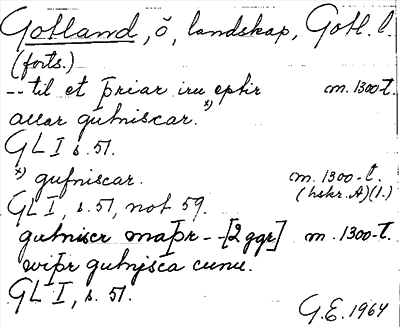 Gotland, ö, landskap, Gotl. l.
(forts.)
-- til et þriar iru eptir m. 1300-t.
allar gutniscar. x)
GL I s. 51.
x) gufniscar. m. 1300-t.
(hskr. A) (1.)
GL I, s. 51, not 59.
gutniscr maþr -- [2 ggr] m. 1300-t.
wiþr gutnisca cunu.
GL I, s. 51.
G.E. 1964